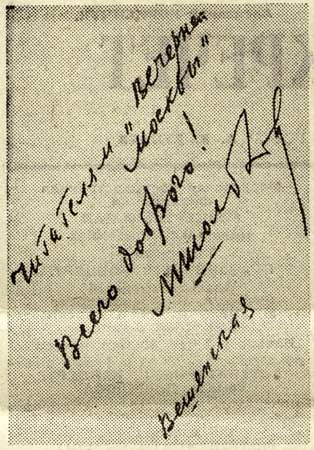 Читателям "Вечерней
Москвы"
Всего доброго!
МШолохов
Вешенская